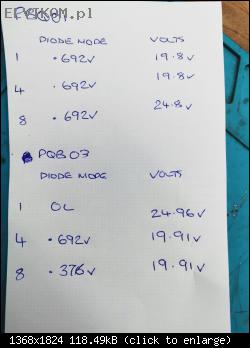 PBQ01
EPVIKOM.pl
DIODE MODE VOLTS
1 .692V 19.8V
4 .692V 19.8V
8 .692V 24.8V
PQB03
DIODE MODE VOLTS
1 OL 24.96V
4 .692V 19.91V
8 .376V 19.91V
1368x1824 118.49kB (click to enlarge)